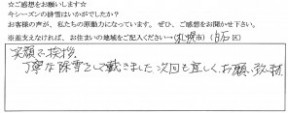 ☆ご感想をお願いします☆
今シーズンの排雪はいかがでしたか?
お客様の声が、私たちの原動力になっています。ぜひ、ご感想をお聞かせ下さい。
※差支えなければ、お住まいの地域をご記入ください→札幌市(白石区)
笑顔で挨拶、
丁寧な除雪をして戴きました 次回も宜しくお願い致します